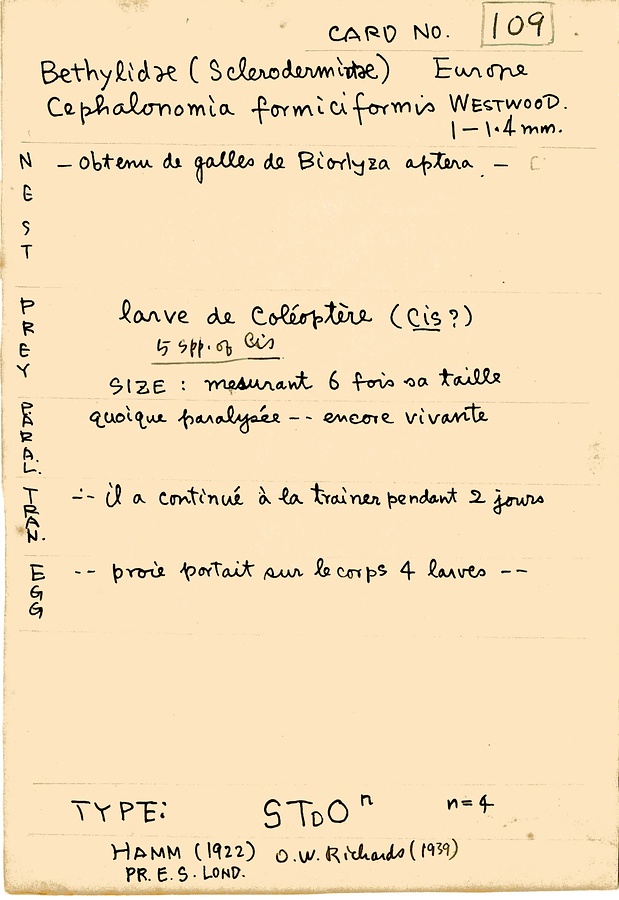 CARD NO. 109
Bethylidae (Sclerodermidae) Europe
Cephalonomia formiciformis WESTWOOD.
1-1.4 mm.
NEST
- obtenu de galles de Biorhyza aptera. -
PREY
larve de Coléoptère (Cis?)
5 spp. of Cis
SIZE : mesurant 6 fois sa taille
PARAL.
quoique paralysée -- encore vivante
TRAN.
-- il a continué à la trainer pendant 2 jours
EGG
-- proie portait sur le corps 4 larves --
TYPE: STDOⁿ n=4
HAMM (1922) O.W. Richards (1939)
PR. E. S. LOND.